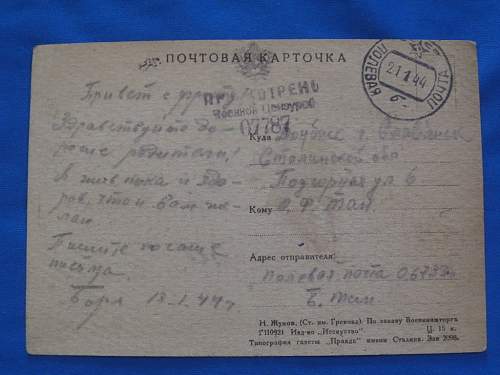 ПОЧТОВАЯ КАРТОЧКА
ПРОСМОТРЕНО
Военной Цензурой
07787
ПОЛЕВАЯ ПОЧТА
21 1 44
б
Привет с фронту
Здравствуйте до-
рогие родители!
Я жив пока и здо-
ров, что и вам же-
лаю
Пишите почаще
письма.
Боря 18.1.44 г.
Куда Донбасс г.
Сталинской обл
Подгорная ул 6
Кому
Адрес отправителя:
Полевая почта
Б.
Н. Жуков. (Ст. им. Грекова). По заказу Военниздторга
Изд-во „Искусство“ Ц. 15 к.
Типография газеты „Правда“ имени Сталина. Зак 2098.